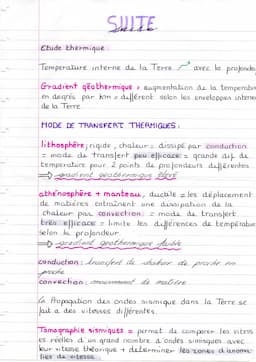 SUITE
Etude thermique:
Température interne de la Terre ↗ avec la profonde
Gradient géothermique = augmentation de la températur
en degrés par km = différent selon les enveloppes interne
de la Terre.
MODE DE TRANSFERT THERMIQUES:
lithosphère; rigide, chaleur = dissipé par conduction
= mode de transfert peu efficace = grande dif. de
température pour 2 points de profondeurs différentes
⇒ gradient géothermique élevé
athénosphère + manteau, ductile = les déplacement
de matières entraînent une dissipation de la
chaleur par convection: = mode de transfert
très efficace = limite les différences de températue
selon la profondeur
⇒ gradient géothermique faible
conduction: transfert de chaleur de proche en
proche
convection: mouvement de matière
La Propagation des ondes sismique dans la Terre se
fait a des vitesses différentes.
Tomographie sismiques = permet de comparer les vitess
es réelles d'un grand nombre d'ondes sismiques avec
leur vitesse théorique + déterminer les zones d'anoma
lies de vitesse.